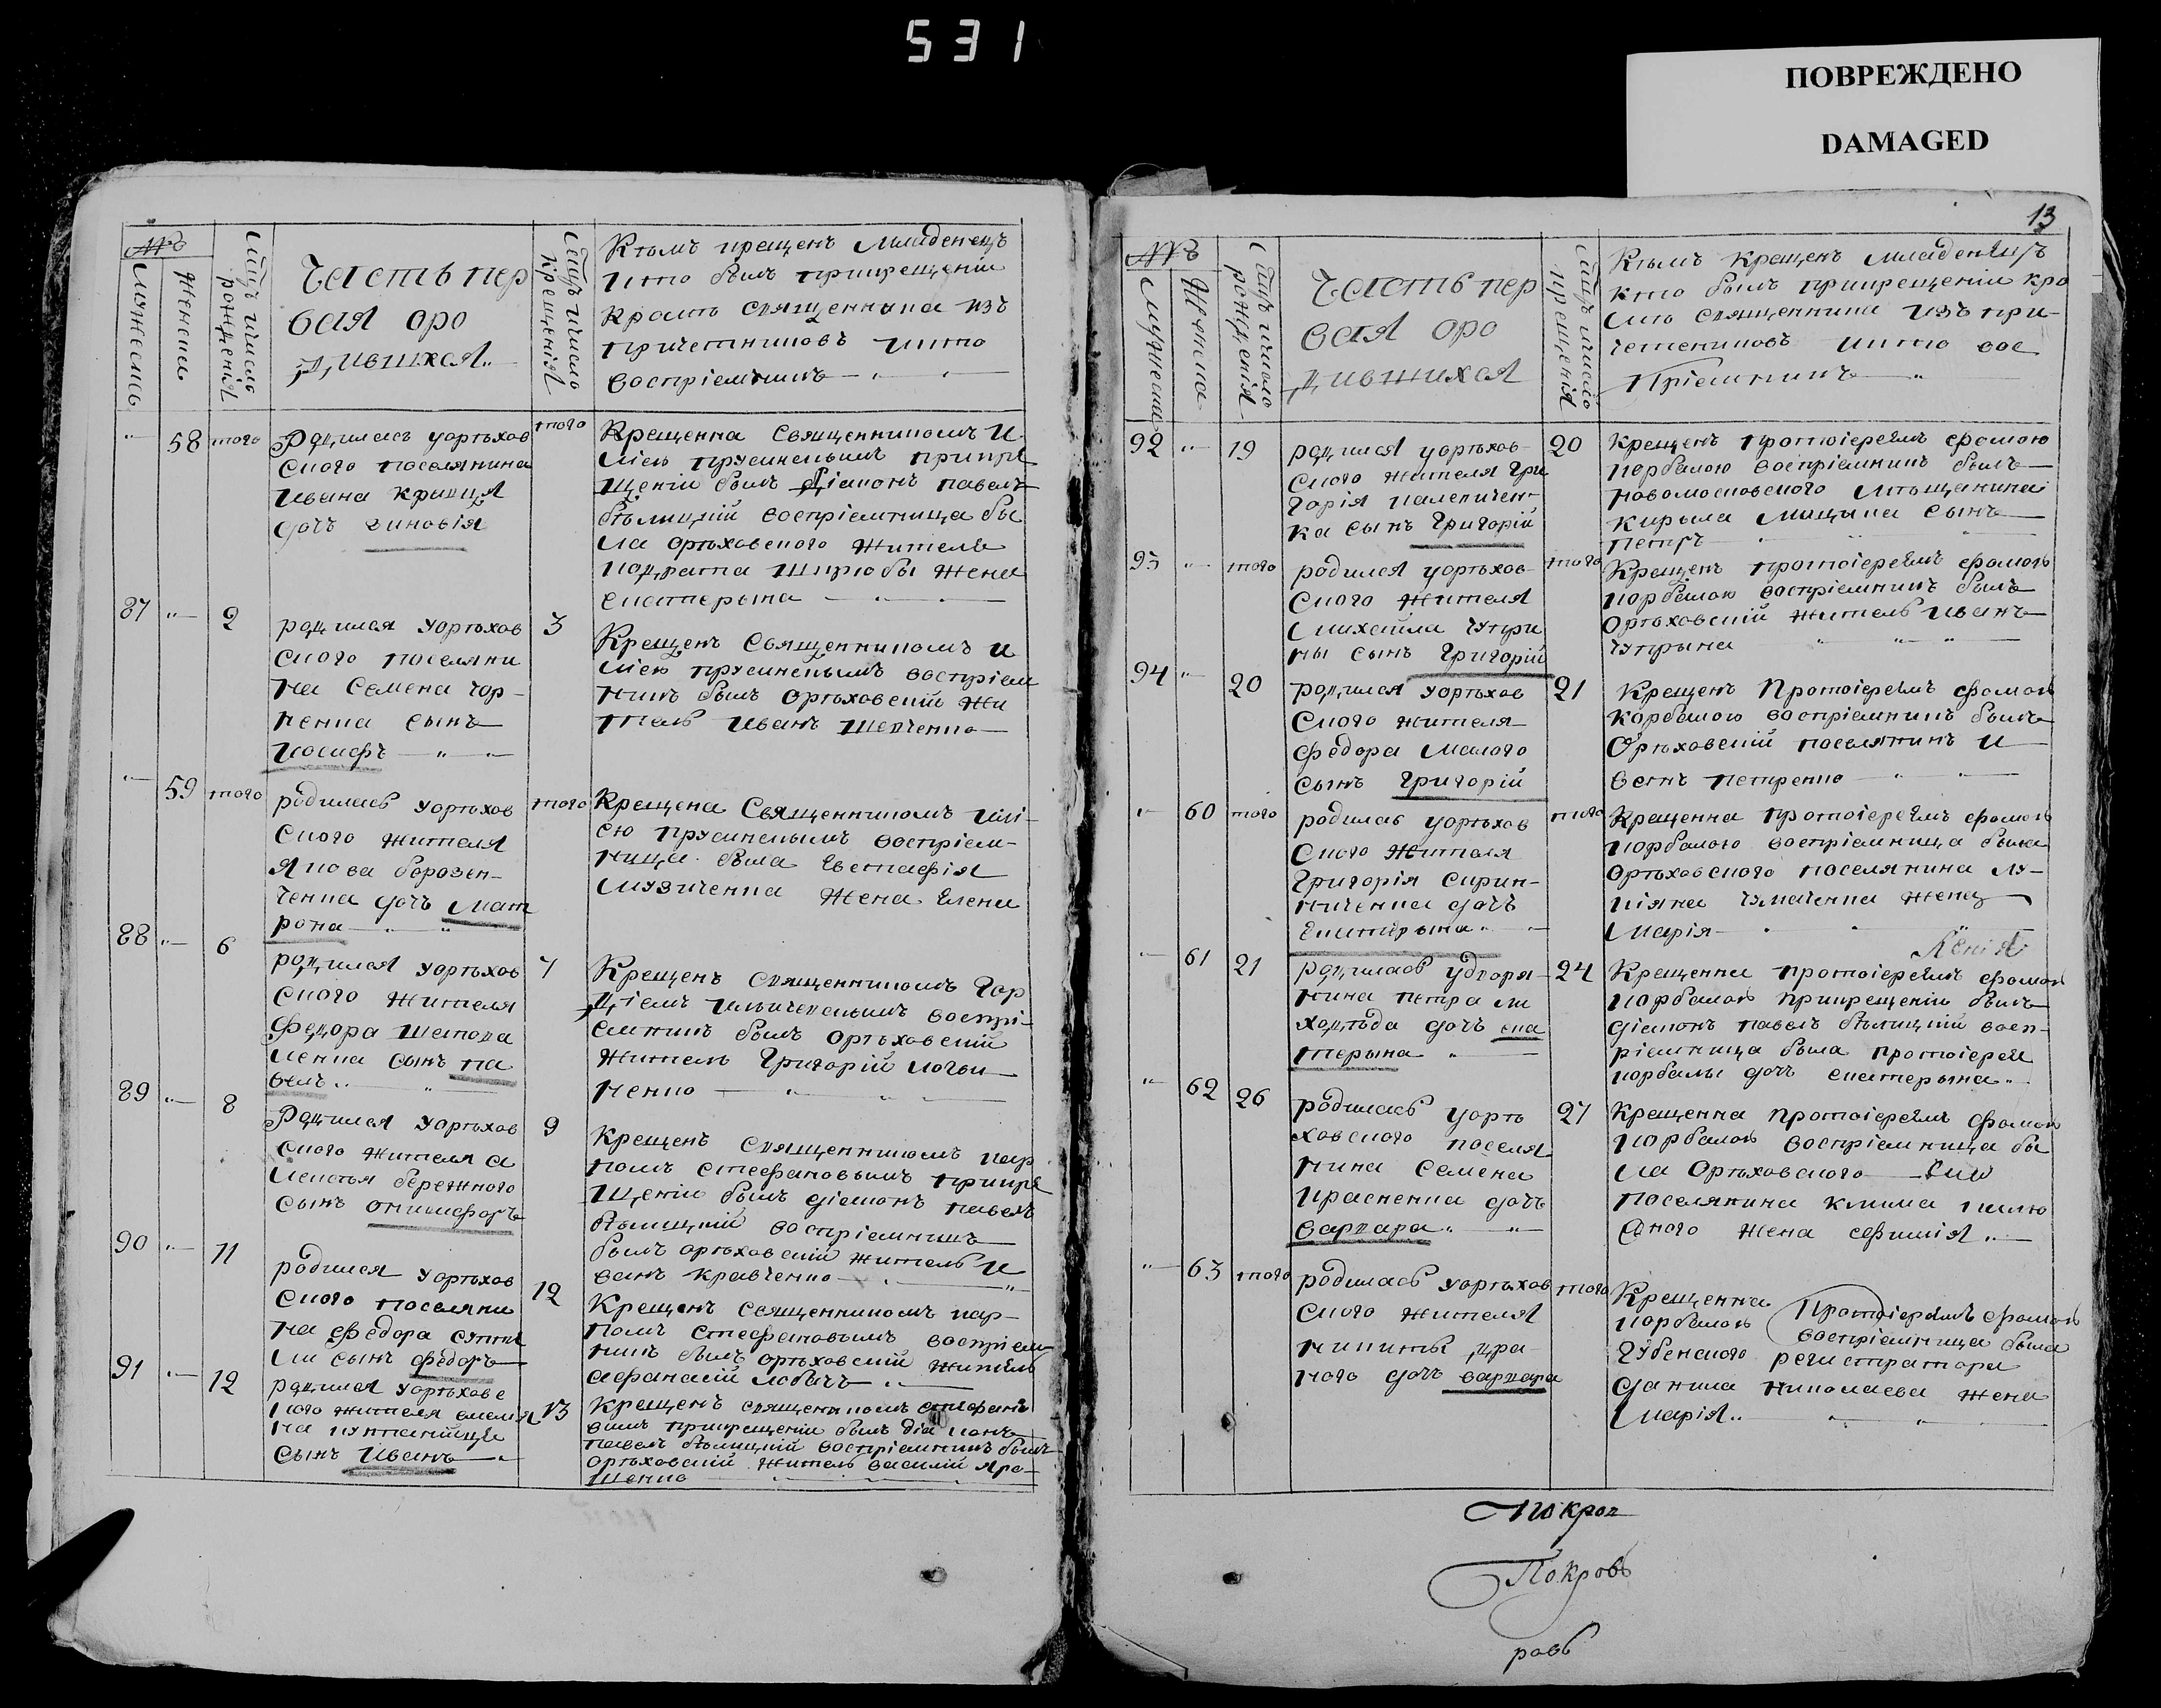 531
ПОВРЕЖДЕНО
DAMAGED
№
Мужеска
Женска
Мцъ число рожденія
Часть пер
вая оро
дившихся
Мцъ число крещенія
Кѣмъ крещенъ младенецъ
икто былъ прикрещеніи
кромѣ священника изъ
причетниковъ икто
воспріемникъ
58 того
Родилась уорѣхов
ского поселянина
Ивана
дочь Зиновія
того
Крещенна священникомъ И
ліею прусинскимъ прикре
щеніи былъ діаконъ павелъ
бѣлицкій воспріемница бы
ла орѣховского жителя
кодрата жена
екатерына
87 2
родился уорѣхов
ского поселяни
на Семена гор
пенка сынъ
Іосифъ
3
Крещенъ Священникомъ И
ліею прусинскимъ воспріем
никъ былъ орѣховскій жи
тель Иванъ Шевченко
59 того
родилась уорѣхов
ского жителя
Якова борозен-
ченка дочь Мат
рона
того
Крещена Священникомъ Илі-
ею прусинскимъ воспріем-
ница была Евстафія
музиченка жена Елена
88 6
родился уорѣхов
ского жителя
Федора Шепова
ленка сынъ па
велъ
7
Крещенъ священникомъ Гор
діемъ воспрі-
емникъ былъ орѣховскій
житель Григорій логви
ненко
89 8
Родился уорѣхов
ского жителя а
лексѣя бережного
сынъ онисифоръ
9
Крещенъ священникомъ кар
помъ стефановымъ прикре
щеніи былъ діаконъ павелъ
бѣлицкій воспріемникъ
былъ орѣховскій житель И
ванъ кравченко
90 11
родился уорѣхов
ского поселяни
на федора
ли сынъ федоръ
12
Крещенъ священникомъ кар-
помъ стефановымъ воспріем
никъ былъ орѣховскій житель
афанасій лобачъ
91 12
родился уорѣховс
кого жителя емелья
на
сынъ Иванъ
13
Крещенъ священикомъ стефано
вымъ прикрещеніи былъ діаконъ
павелъ бѣлицкій воспріемникъ былъ
орѣховскій житель василій яро-
шенко
13
№
Мужеска
Женска
Мцъ число рожденія
Часть пер
вая оро
дившихся
Мцъ число крещенія
Кѣмъ крещенъ младенецъ
кто былъ прикрещеніи кро
мѣ священника изъ при-
четниковъ икто вос
пріемникъ
92 19
родился уорѣхов-
ского жителя Гри
горія палепичен-
ка сынъ Григорій
20
Крещенъ протоіереемъ фомою
корбамою воспріемникъ былъ
новомосковского мѣщанина
кирыла сынъ
петръ
93 того
родился уорѣхов-
ского жителя
михайла чупри
ны сынъ Григорій
того
Крещенъ протоіереемъ фомою
корбамою воспріемникъ былъ
Орѣховскій житель Иванъ
чупрына
94 20
родился уорѣхов
ского жителя
федора малого
сынъ Григорій
21
Крещенъ Протоіереемъ фомою
корбамою воспріемникъ былъ
Орѣховскій поселянинъ И
ванъ петренко
60 того
родилась уорѣхов
ского жителя
Григорія скрип-
ниченка дочь
екатерына
того
Крещенна протоіереемъ фомою
корбамою воспріемница была
орѣховского поселянина лу-
кіяна чумаченка жена
Марія
Ксенія
61 21
родилась удворя-
нина петра ли
ходѣда дочь ека
терына
24
Крещенна протоіереемъ фомою
корбамою прикрещеніи былъ
діаконъ павелъ бѣлицкій восп-
ріемница была протоіерея
корбамы дочь екатерына
62 26
родилась уорѣ
ховского поселя
нина Семена
красненка дочь
варвара
27
Крещенна протоіереемъ фомою
корбамою воспріемница бы
ла Орѣховского
поселянина клима
жена ефимія
63 того
родилась уорѣхов
ского жителя
никиты дра-
ного дочь варвара
того
Крещенна Протоіереемъ фомою
корбамою воспріемница была
Губенского регистратора
данила николаева жена
Марія
покров
Покровъ
ровъ